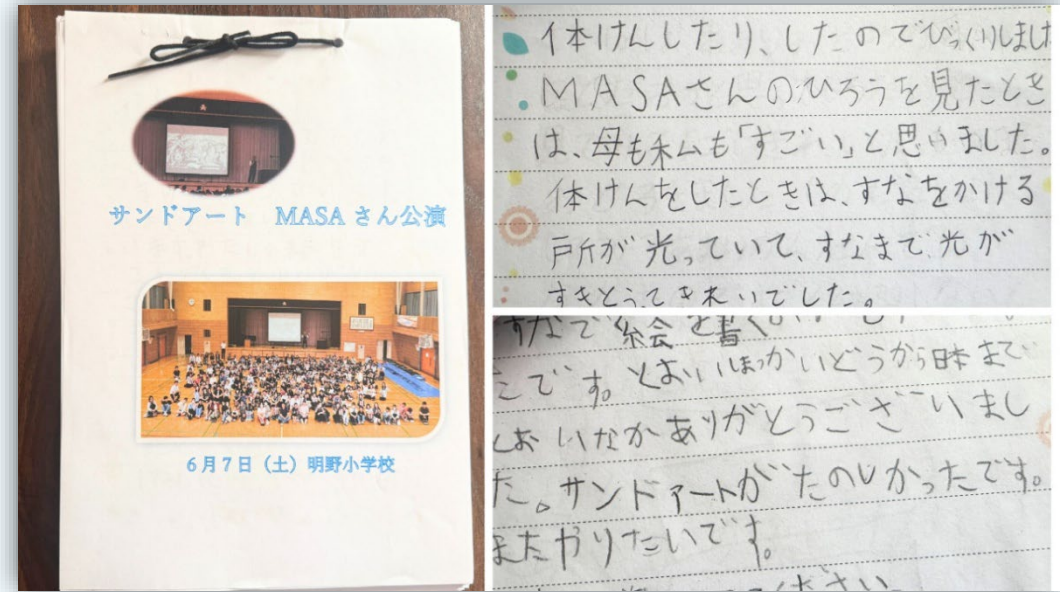 サンドアート MASAさん公演
6月7日（土）明野小学校
体けんしたり、したのでびっくりしました
MASAさんのひろうを見たとき
は、母も私も「すごい」と思いました。
体けんをしたときは、すなをかける
所が光っていて、すなまで光が
すきとうてきれいでした。
すなで絵を書く
こです。とおいほっかいどうから日本まで
とおいなかありがとうございまし
た。サンドアートがたのしかったです。
またやりたいです。
ください